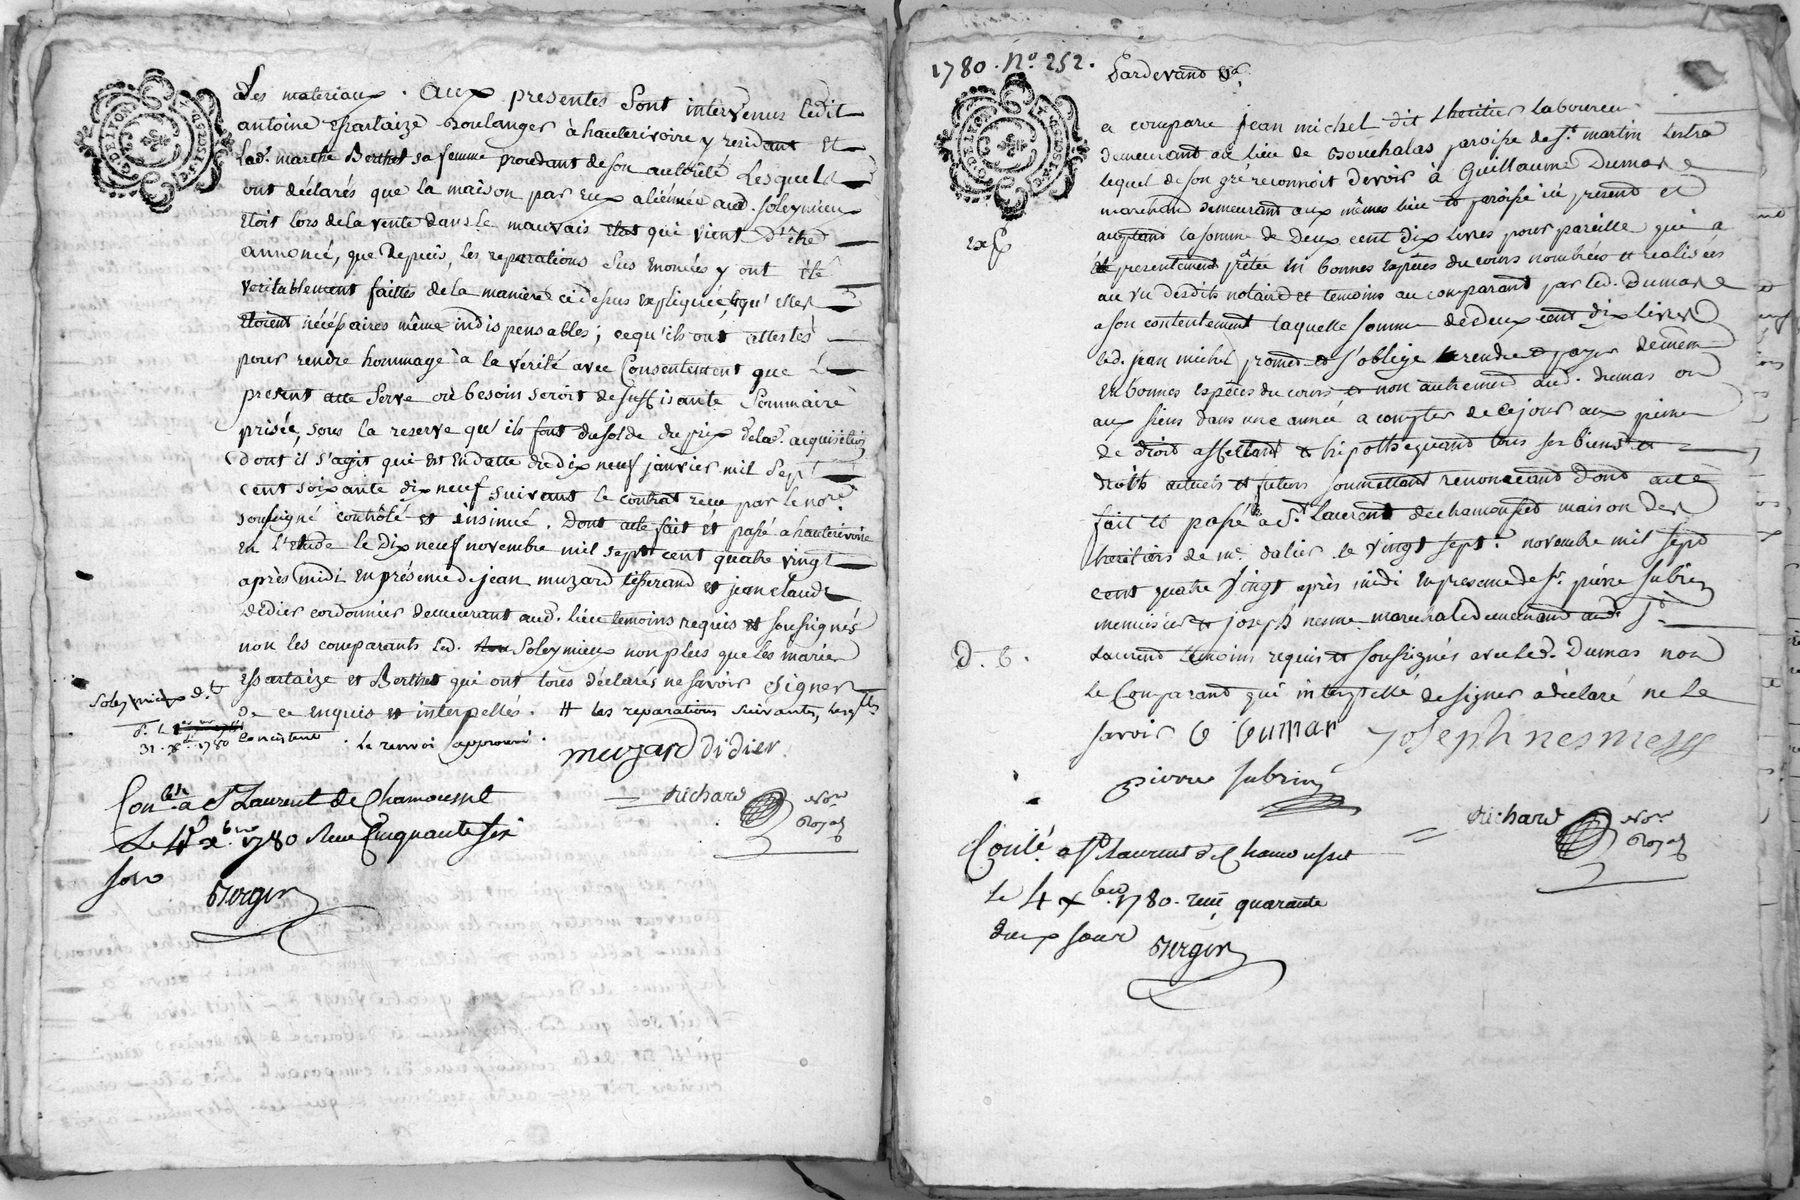 des materiaux. Aux presentes sont intervenus ledit
antoine Essartaize Boulanger à hauterivoire y residant Et
lad. marthe Berthet sa femme procedant de son autorité Lesquels
ont déclarés que la maison par Eux aliénnée aud. Soleymieux
Etoit lors de la vente dans le mauvais Etat qui vient d'être
annoncé, que Depuis, les reparations sus énoncées y ont été
veritablement faittes de la maniere ci dessus expliquée, qu'elles
Etoient nécéssaires même indispensables; ce qu'ils ont attestés
pour rendre hommage à la vérité avec Consentement que le
present acte serve où besoin seroit de suffisante Sommaire
prisée, sous la reserve qu'ils font du solde du prix de lad. acquisition
Dont il s'agit qui est En datte du Dix neuf janvier mil Sept
cent soixante dix neuf suivant le contrat reçu par le nore.
soussigné contrôlé et insinué. Dont acte fait et passé a hauterivoire
En l'Etude le Dix neuf novembre mil sept cent quatre vingt
après midi En présence de jean muzard tisserand et jean claude
Didier cordonnier demeurant aud. lieu temoins requis et soussignés
non les comparants led. Soleymieux non plus que les mariés
Essartaize et Berthet qui ont tous déclarés ne savoir signer
de ce enquis et interpellés. # les reparations suivantes, lesqlles
Soleymieux d. t
31. xbre 1780
Consistent. Le renvoi approuvé.
muzard Didier
Conlé a St Laurent de Chamousset
Le 4 xbre 1780 Reçu Cinquante six
sols
Berger
Richard Nore
Royal
1780. No. 252.
Pardevant
a comparu jean michel dit Lheritier laboureur
demeurant au lieu de Bouchalas paroisse de St. martin Lestra
lequel de son gré reconnoit devoir à Guillaume Dumas
marchand demeurant aux mêmes lieu et paroisse ici présent et
acceptant la somme de Deux cent Dix livres pour pareille qui a
été presentement pretée En bonnes Espèces du cours nombrées et realisées
au vu desdits notaire et temoins au comparant par led. Dumas
a son contentement laquelle somme de deux cent dix livres
led. jean michel promet et s'oblige rendre et payer de même
En bonnes Espèces du cours et non autrement aud. dumas ou
aux siens dans une année a compter de ce jour aux peines
de droit affectant et hipothequant tous ses biens et
droits actuels et futurs soumettant renonceant Dont acte
fait et passé à St. Laurent de chamousset maison des
heritiers de me. dalier le vingt sept novembre mil sept
cent quatre vingt après midi En presence de Sr. pierre subrin
menuisier et joseph nesme marechal demeurant aud. St.
Laurent temoins requis et soussignés avec led. Dumas non
le Comparant qui interpellé de signer a déclaré ne le
savoir G Dumas joseph nesme
pierre subrin
D. G.
Richard Nore
Royal
Conlé. a St Laurent de Chamousset
le 4 xbre. 1780. reçu quarante
deux sous
Berger